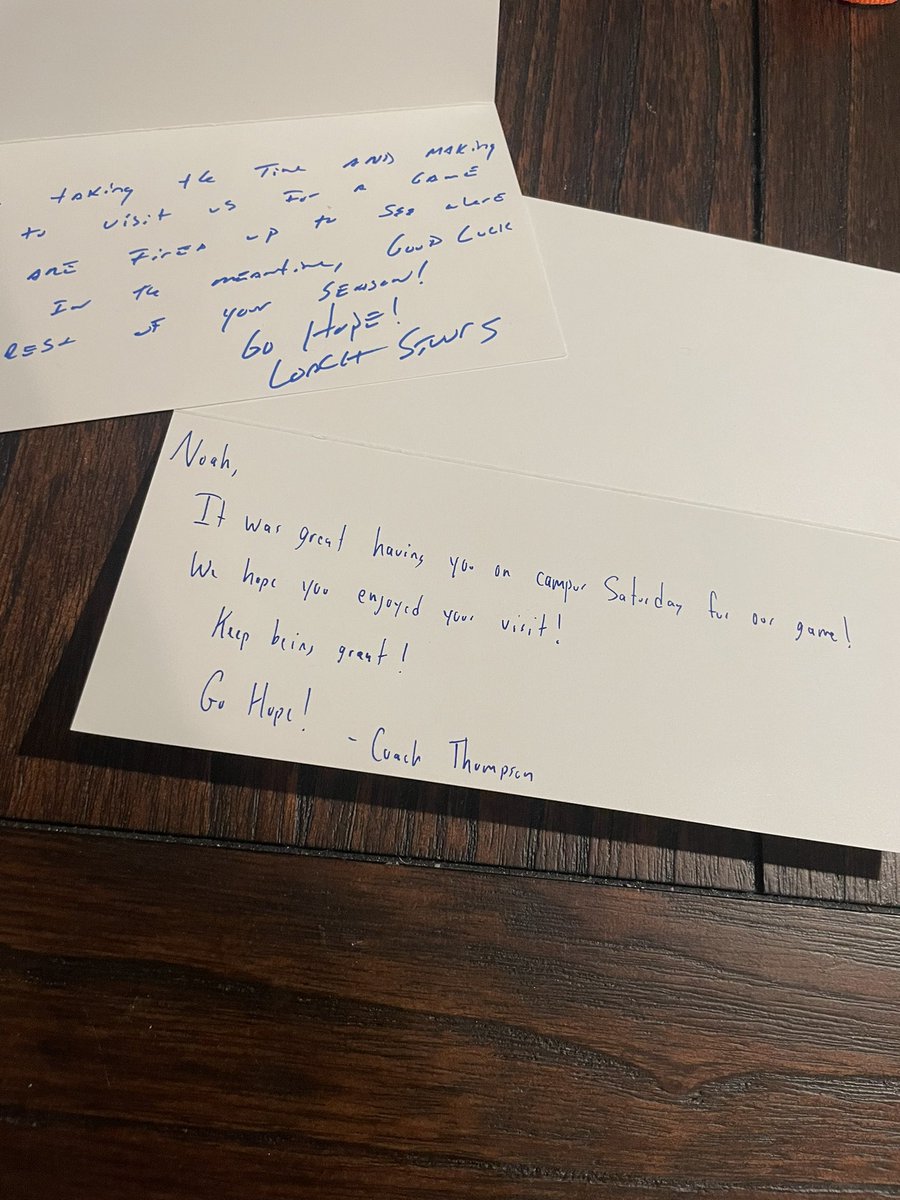 taking the Time AND MAKing
to visit us For a GAME
ARE FireD up to SEE where
In the meantime, GOOD LUCK
REST OF your SEASON!
Go HOPE!
COACH
Noah,
It was great having you on campus Saturday for our game!
We hope you enjoyed your visit!
Keep being great!
Go Hope!
- Coach Thompson